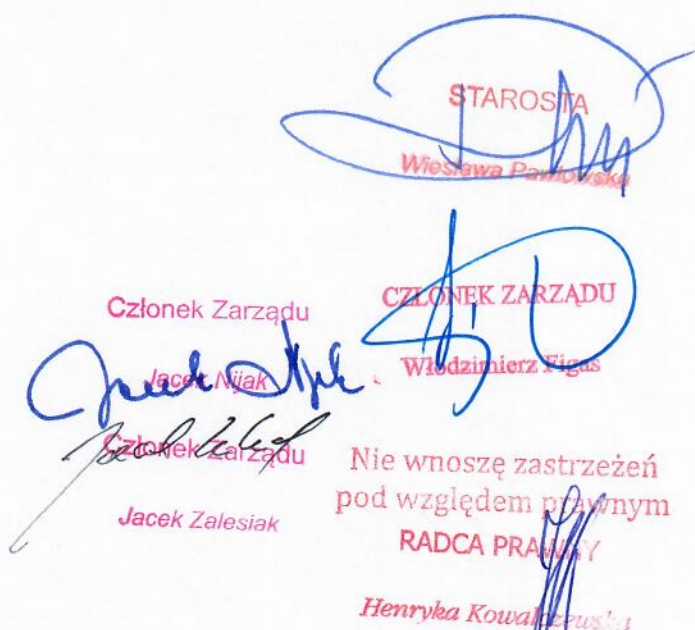 STAROSTA
Wiesława Pawłowska
CZŁONEK ZARZĄDU
Włodzimierz Figas
Członek Zarządu
Jacek Nijak
Członek Zarządu
Jacek Zalesiak
Nie wnoszę zastrzeżeń
pod względem prawnym
RADCA PRAWNY
Henryka Kowalczewska